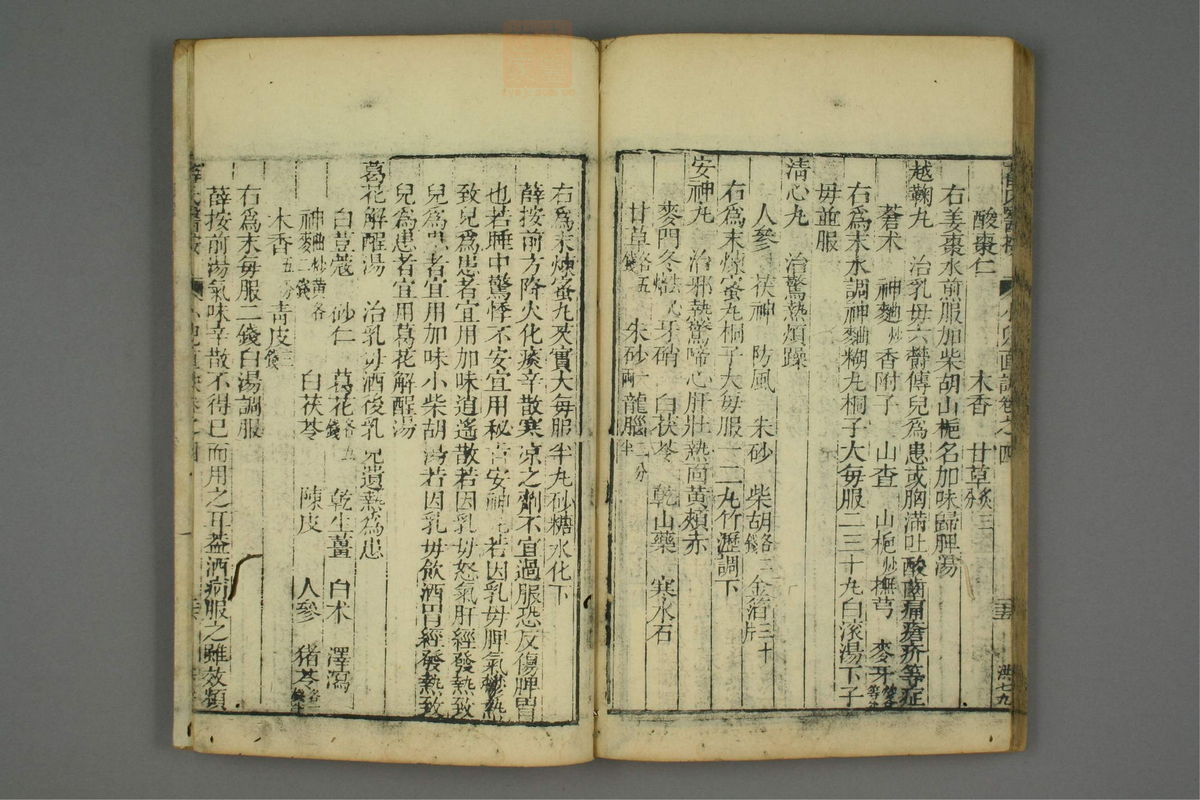 酸棗仁 木香 甘草炙三分
右姜棗水煎服加柴胡山梔名加味歸脾湯
越鞠丸 治乳母六鬱傳兒爲患或胸滿吐酸齒痛瘡疥等症
蒼术 神麴炒 香附子 山查 山梔炒 撫芎 麥牙
右爲末水調神麴糊丸桐子大每服二三十九白滚湯下子
母並服
清心丸 治驚熱煩躁
人參 茯神 防風 朱砂 柴胡各二錢 金箔三十片
右爲末煉蜜丸桐子大每服一二丸竹瀝調下
安神丸 治邪熱驚啼心肝壯熱面黃頰赤
麥門冬 牙硝 白茯苓 乾山藥 寒水石
甘草各五錢 朱砂一兩 龍腦二分半
右爲末煉蜜丸芡實大每服半丸砂糖水化下
薛按前方降火化痰辛散寒凉之劑不宜過服恐反傷脾胃
也若睡中驚悸不安宜用秘旨安神丸若因乳母脾氣鬱熱
致兒爲患者宜用加味逍遙散若因乳母怒氣肝經發熱致
兒爲患者宜用加味小柴胡湯若因乳母飲酒胃經發熱致
兒爲患者宜用葛花解酲湯
葛花解酲湯 治乳母酒後乳兒遺熱爲患
白荳蔻 砂仁 葛花各五錢 乾生薑 白术 澤瀉
神麴炒黄各二錢 白茯苓 陳皮 人參 猪苓
木香五分 青皮三錢
右爲末每服二錢白湯調服
薛按前湯氣味辛散不得已而用之耳葢酒病服之雖效頻